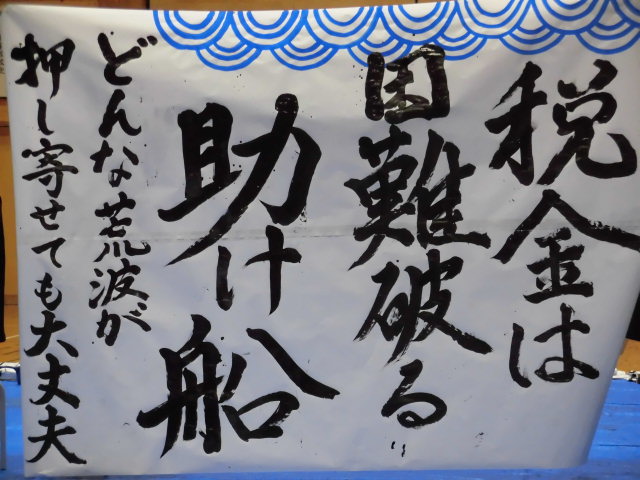 税金は
困難破る
助け船
どんな荒波が
押し寄せても大丈夫